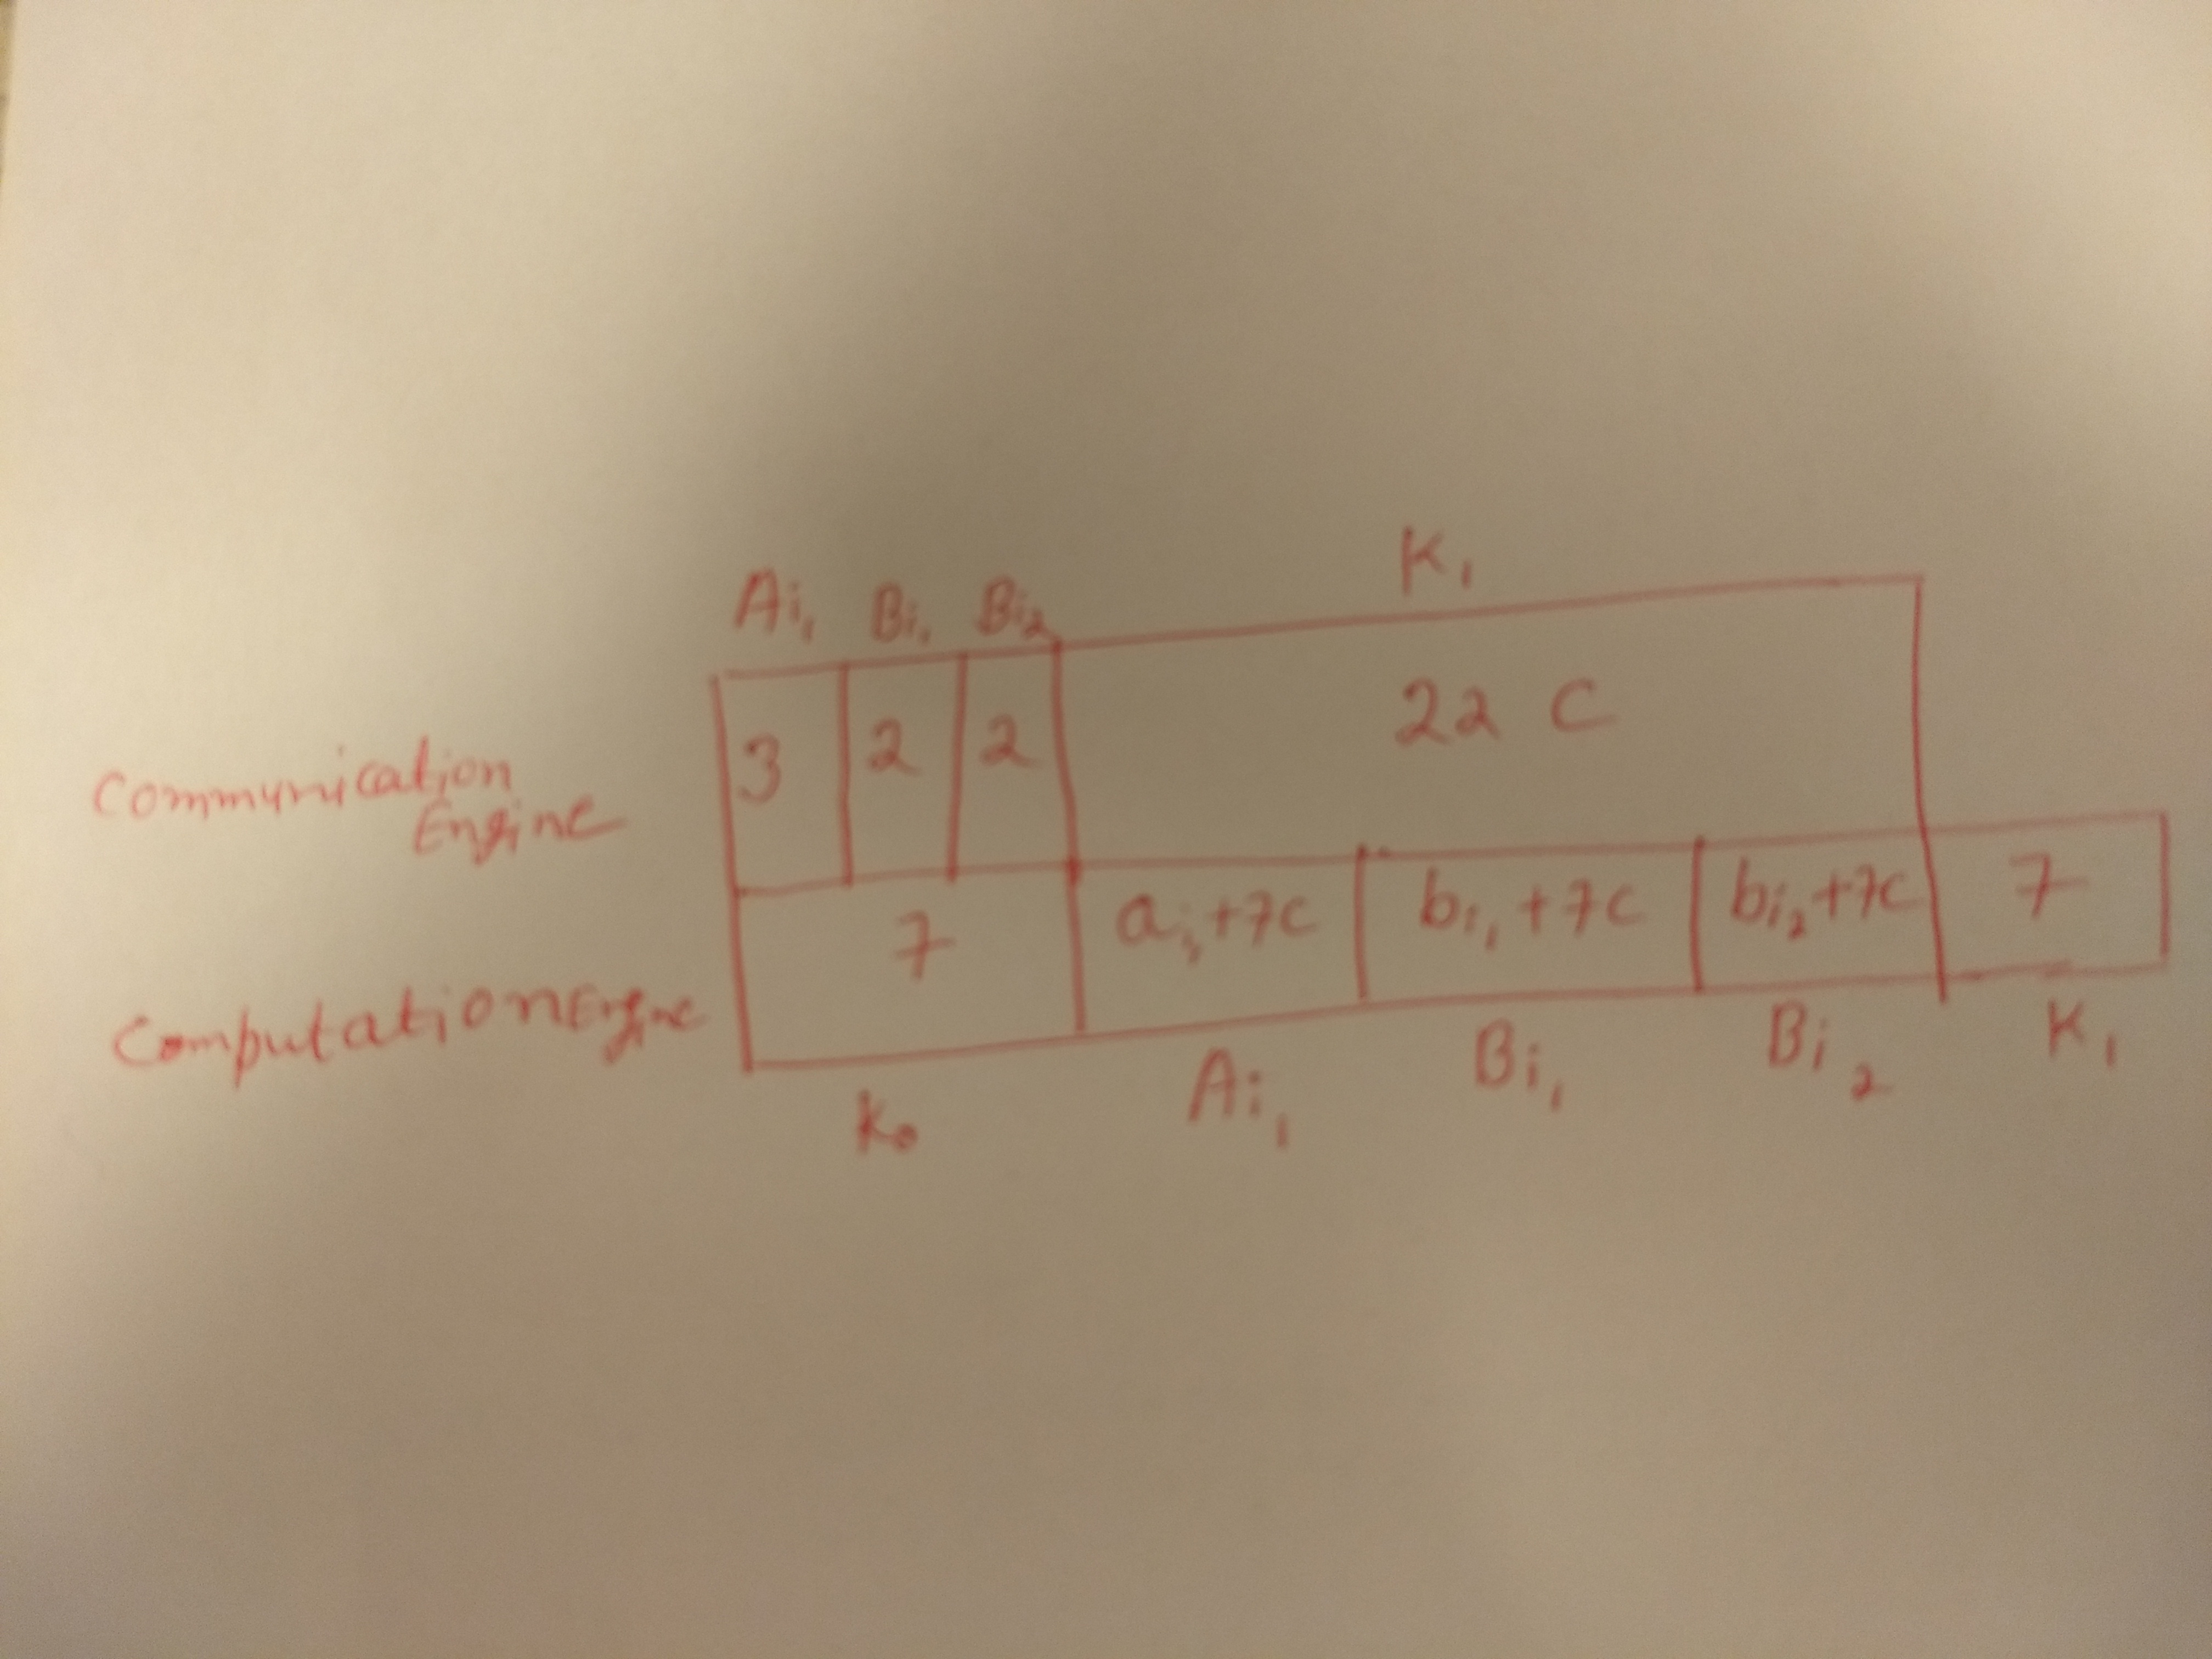 K₁
Ai₁ Bi₁ Bi₂
Communication
Engine
3 2 2 22 C
Computation Engine
7 ai₁+7C bi₁+7C bi₂+7C 7
K₀ Ai₁ Bi₁ Bi₂ K₁